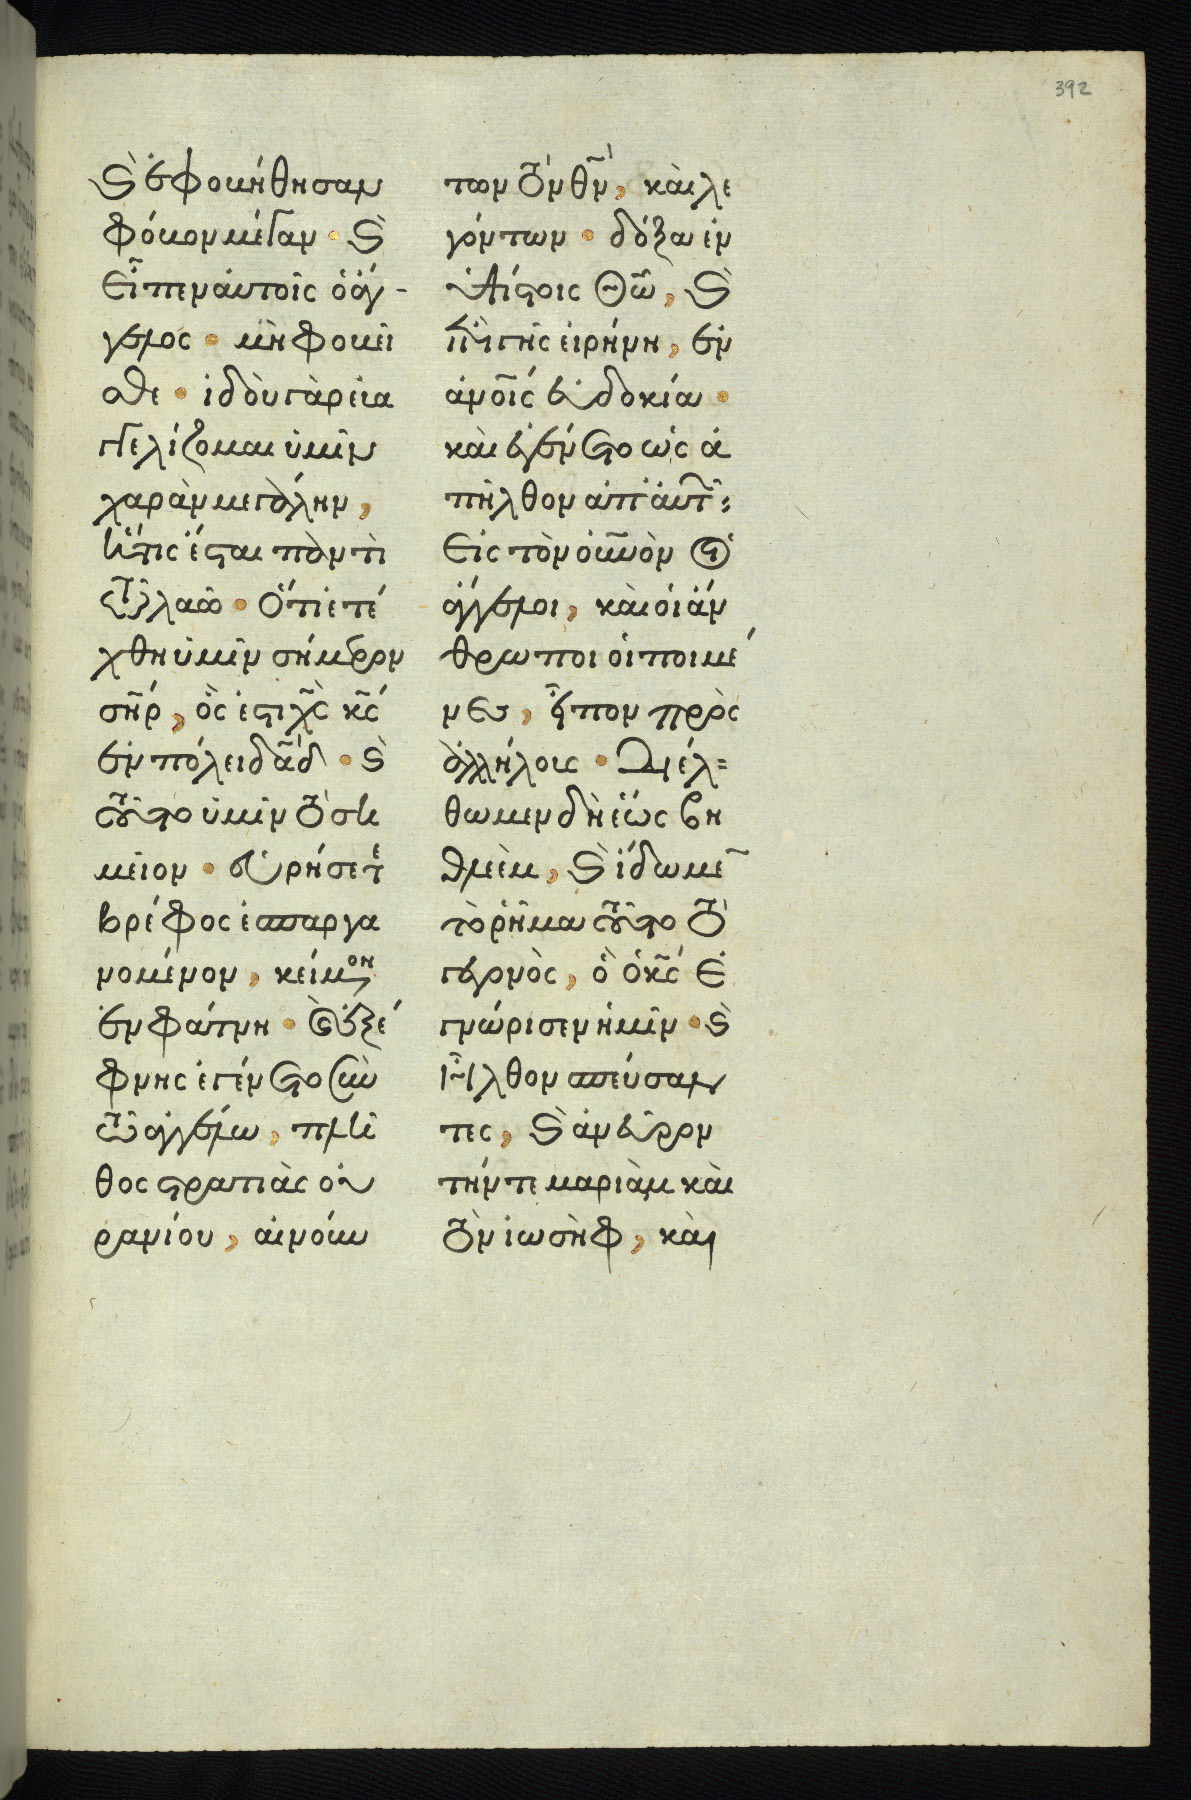 392
ϗ ἐφοβήθησαν
φόβον μέγαν · ϗ
εἶπεν αὐτοῖς ὁ ἄγ-
γελος · μὴ φοβεῖ
σθε · ἰδοὺ γὰρ εὐα
γγελίζομαι ὑμῖν
χαρὰν μεγάλην,
ἥτις ἔσται παντὶ
τῶ λαῶ · ὅτι ἐτέ
χθη ὑμῖν σήμερον
σῆρ, ὅς ἐστι χς κς
ἐν πόλει δαδ · ϗ
τοῦτο ὑμῖν τὸ ση
μεῖον · εὑρήσετε
βρέφος ἐσπαργα
νομένον, κείμενον
ἐν φάτνη · ϗ ἐξέ
φνης ἐγένετο σὺν
τῶ ἀγγέλω, πλῆ
θος στρατιᾶς οὐ
ρανίου, αἰνούν
των τὸν θν, καὶ λε
γόντων · δόξα ἐν
ὑψίστοις θω, ϗ
ἐπὶ γῆς εἰρήνη, ἐν
ἀνοις εὐδοκία ·
καὶ ἐγένετο ὡς ἀ
πῆλθον ἀπ' αὐτῶν
εἰς τὸν οὐνον οἱ
ἄγγελοι, καὶ οἱ ἄν
θρωποι οἱ ποιμέ
νες, εἶπον πρὸς
ἀλλήλους · Διέλ=
θωμεν δὴ ἕως βη
θλεὲμ, ϗ ἴδωμεν
τὸ ῥῆμα τοῦτο τὸ
γεγονὸς, ὃ ὁ κς ἐ
γνώρισεν ἡμῖν · ϗ
ἦλθον σπεύσαν
τες, ϗ ἀνεῦρον
τήν τε μαριὰμ καὶ
τὸν ἰωσὴφ, καὶ